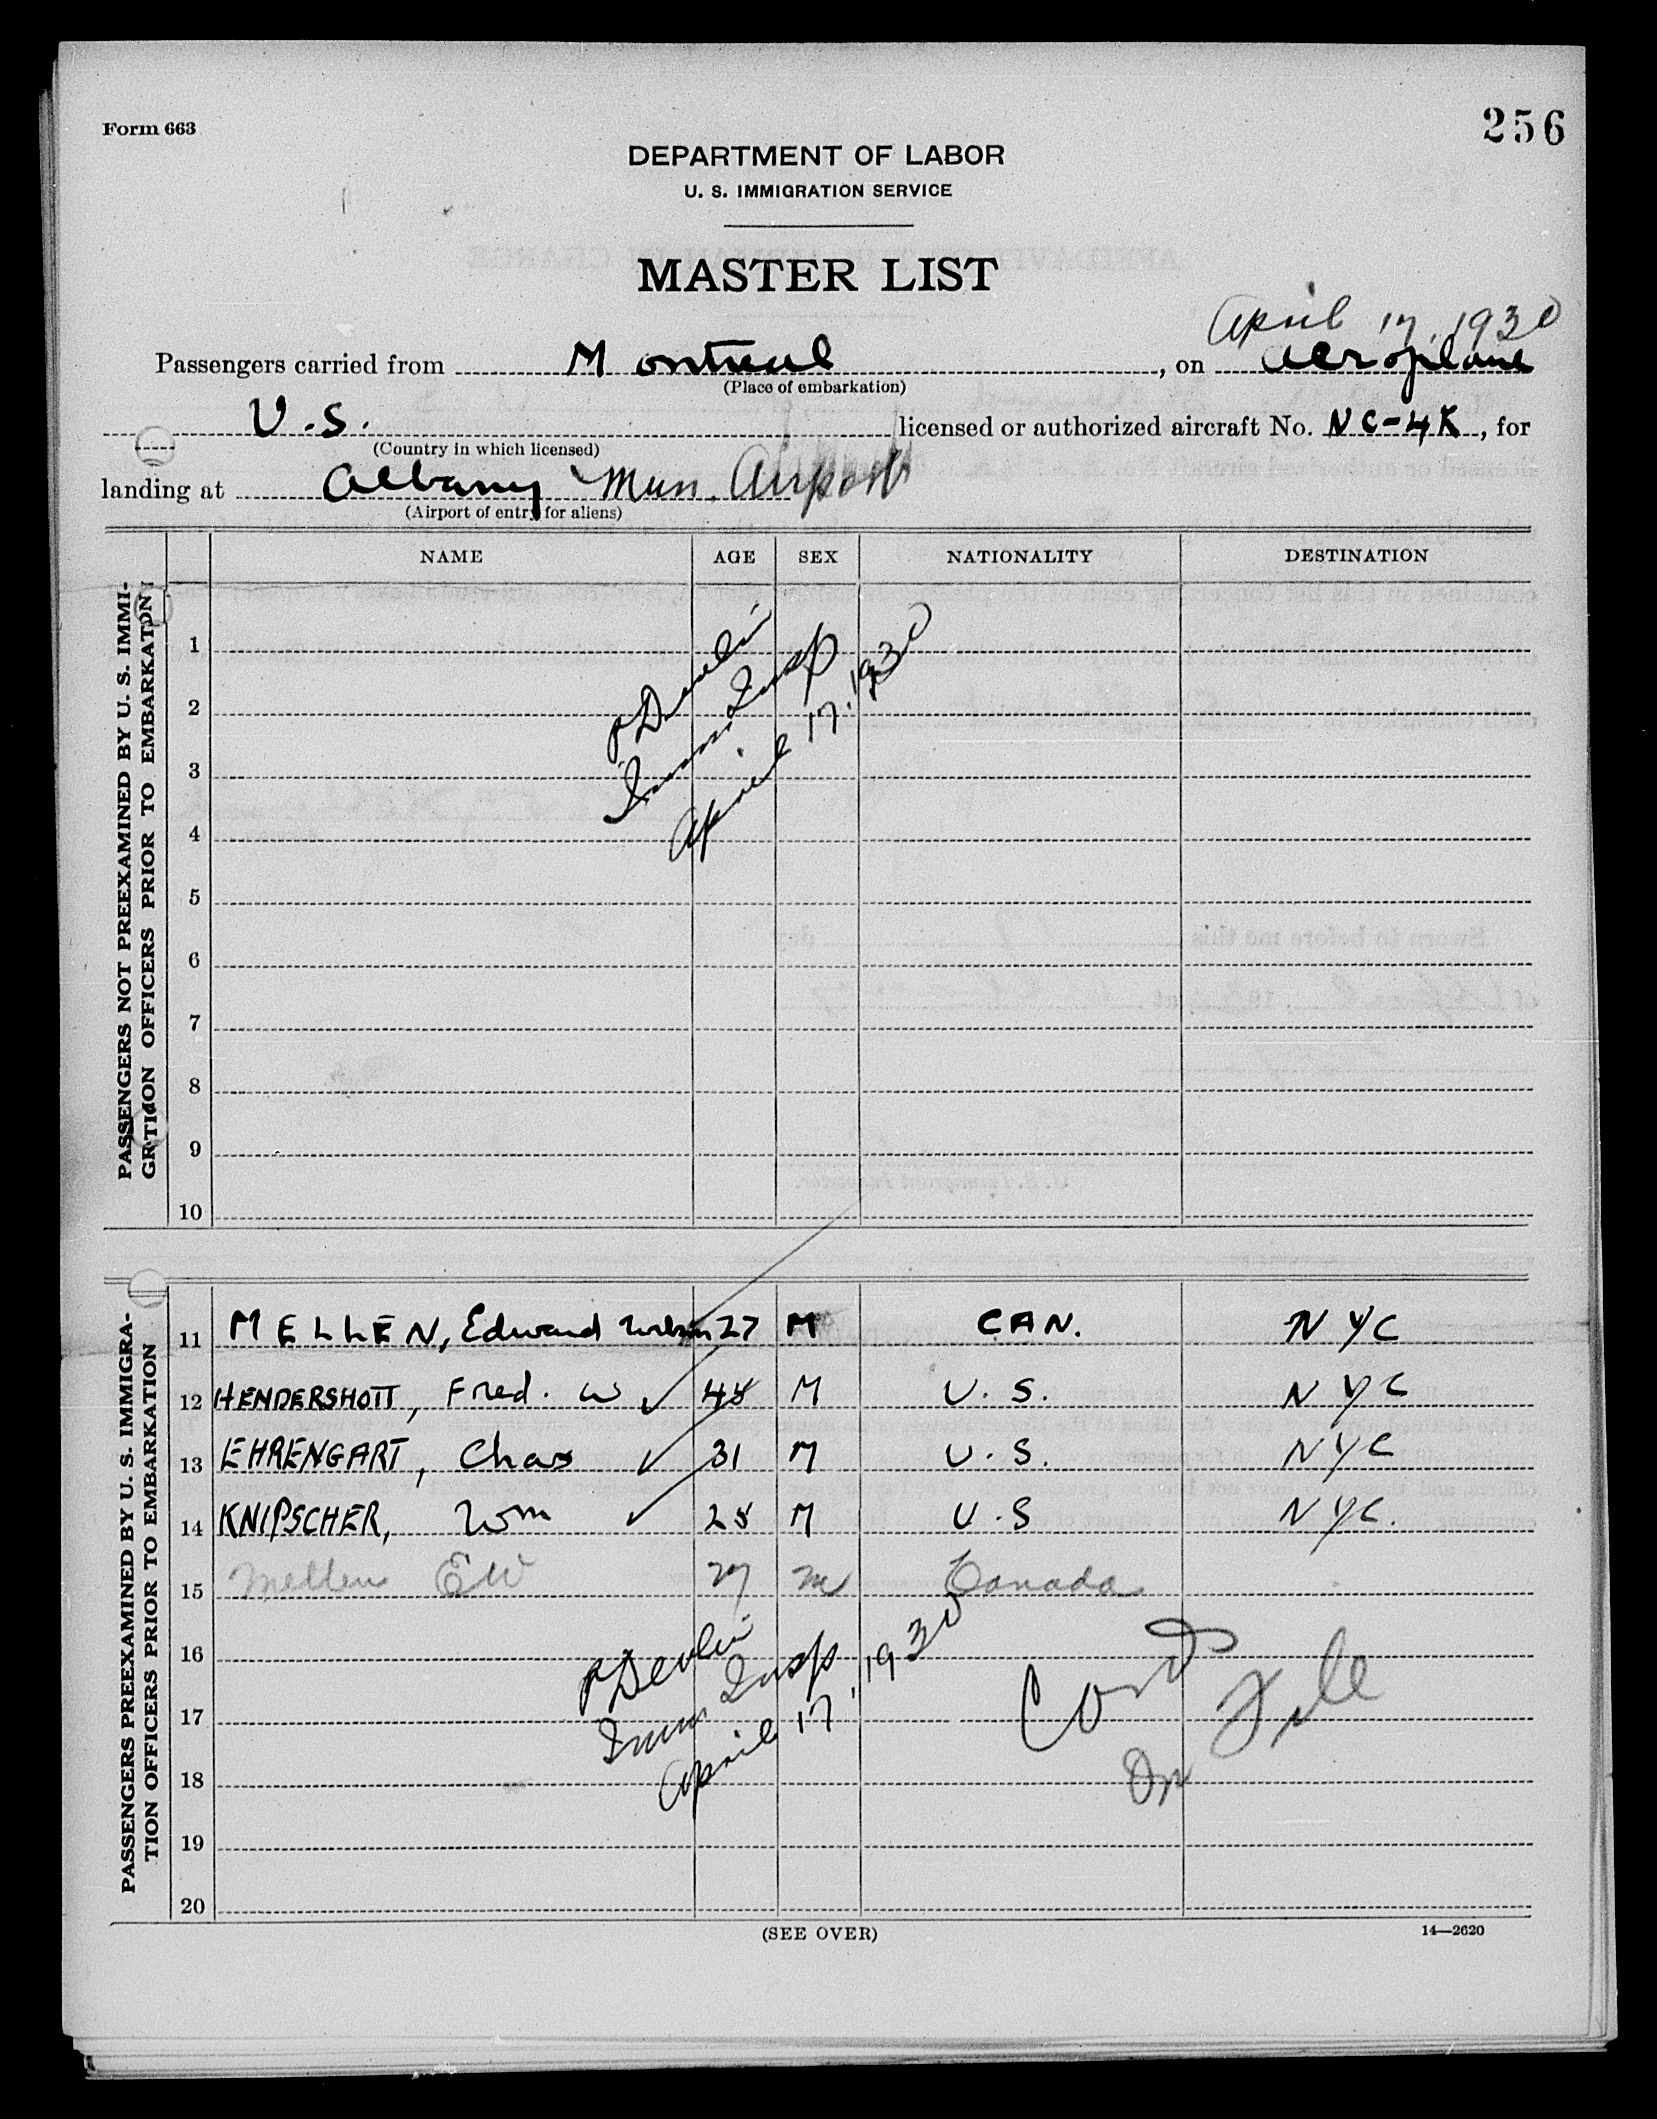 Form 663
256
DEPARTMENT OF LABOR
U. S. IMMIGRATION SERVICE
MASTER LIST
April 17, 1930
Passengers carried from Montreal, on Aeroplane
(Place of embarkation)
U.S. licensed or authorized aircraft No. NC-4K, for
(Country in which licensed)
landing at Albany Mun. Airport
(Airport of entry for aliens)
NAME AGE SEX NATIONALITY DESTINATION
PASSENGERS NOT PREEXAMINED BY U. S. IMMI-
GRATION OFFICERS PRIOR TO EMBARKATION
1
2
3
4
5
6
7
8
9
10
P Devlin
Imm. Insp
April 17, 1930
PASSENGERS PREEXAMINED BY U. S. IMMIGRA-
TION OFFICERS PRIOR TO EMBARKATION
11 MELLEN, Edward 27 M CAN. NYC
12 HENDERSHOTT, Fred. W M U.S. NYC
13 EHRENGART, Chas 31 M U.S. NYC
14 KNIPSCHER, Wm M U.S NYC.
15 Mellen EW 27 m Canada
16
17
18
19
20
P Devlin
Imm Insp
April 17, 1930
Card
File
(SEE OVER)
14—2620